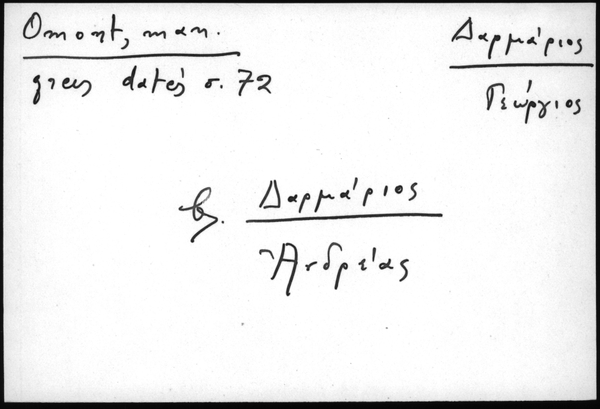 Omont, man.
grecs datés σ. 72
Δαρμάριος
Γεώργιος
βλ. Δαρμάριος
Ἀνδρέας